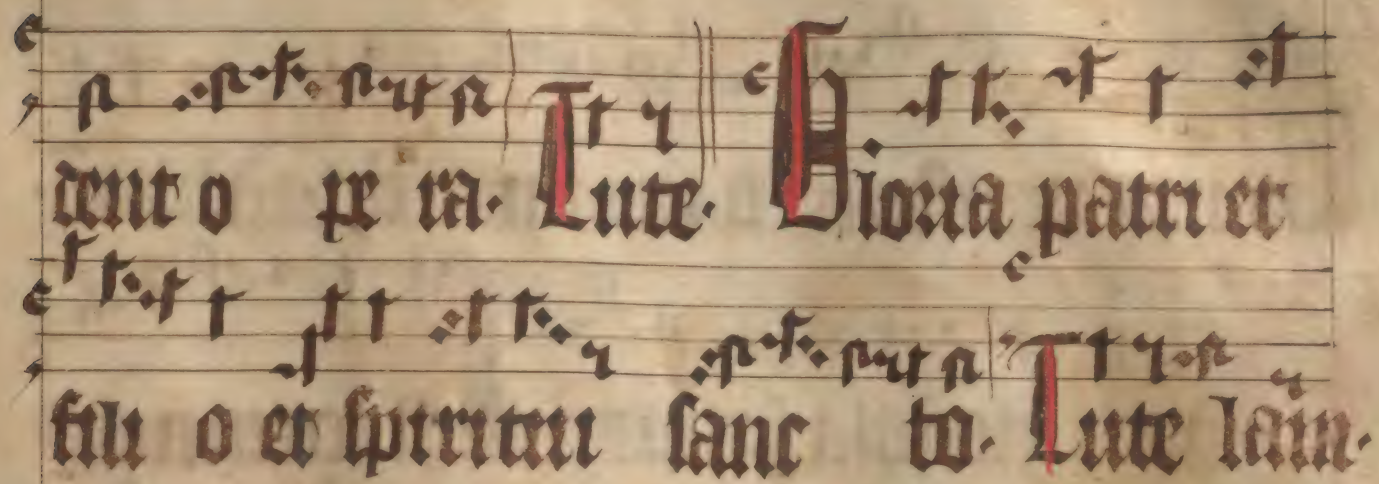 dent o pe ra. Lute. Gloria patri et
fili o et spiritui sanc to. Lute